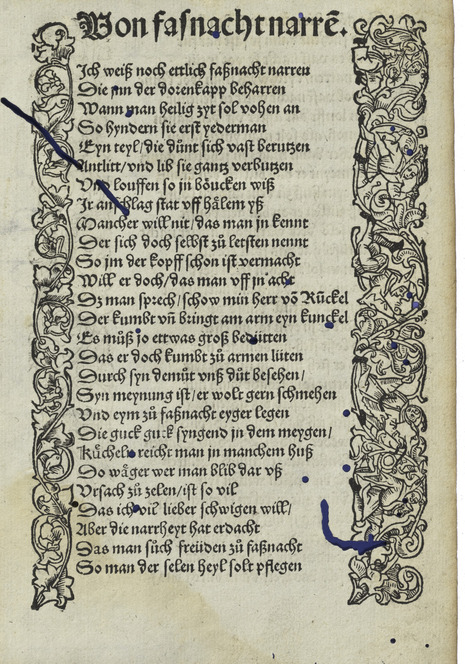 Von fasnacht narrē.
Ich weiß noch ettlich faßnacht narren
Die jnn der dorenkapp beharren
Wann man heilig zyt sol vohen an
So hyndern sie erst yederman
Eyn teyl/ die dünt sich vast berutzen
Antlitt/ vnd lib sie gantz verbutzen
Vnd louffen so jn böucken wiß
Ir anschlag stat vff hälem yß
Mancher will nit/ das man jn kennt
Der sich doch selbst zů letsten nennt
So jm der kopff schon ist vermacht
Will er doch/ das man vff jn acht
Dz man sprech/ schow min herr vō Rückel
Der kumbt vn̄ bringt am arm eyn kunckel
Es můß jo ettwas groß bedütten
Das er doch kumbt zů armen lüten
Durch syn demůt vnß důt besehen/
Syn meynung ist/ er wolt gern schmehen
Vnd eym zů faßnacht eyger legen
Die guck guck syngend jn dem meygen/
Küchelin reicht man in manchem huß
Do wäger wer man blib dar vß
Vrsach zů zelen/ ist so vil
Das ich vil lieber schwigen will/
Aber die narrheyt hat erdacht
Das man sůch freüden zů faßnacht
So man der selen heyl solt pflegen